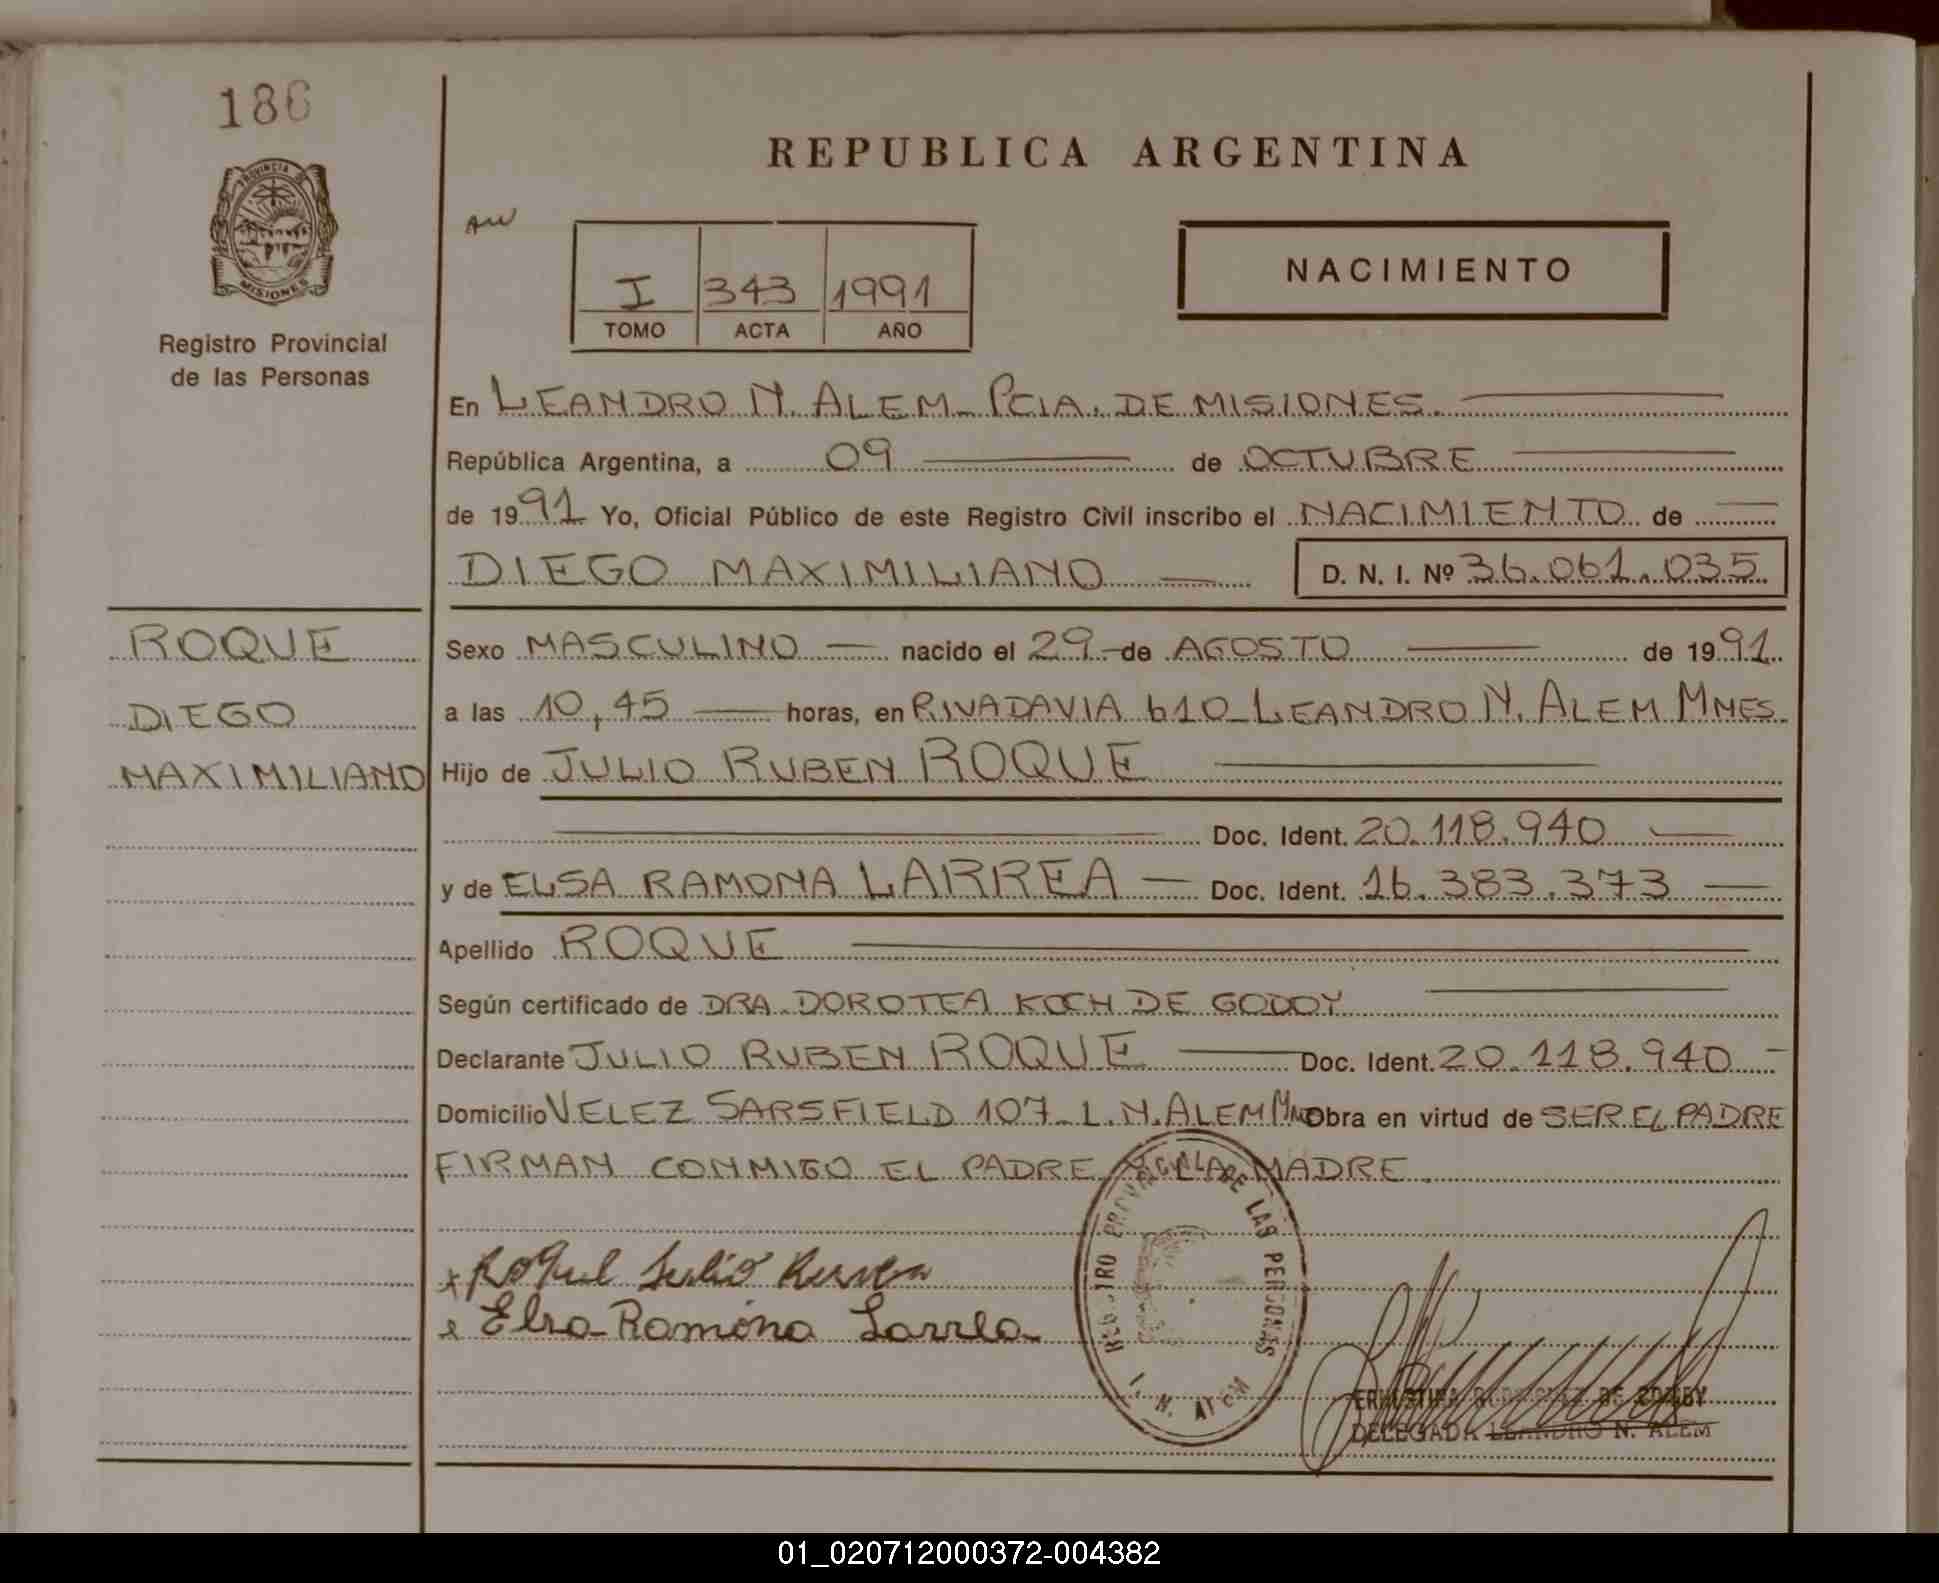 186
REPUBLICA ARGENTINA
PROVINCIA DE
MISIONES
Registro Provincial
de las Personas
I 343 1991
TOMO ACTA AÑO
NACIMIENTO
En LEANDRO N. ALEM PCIA. DE MISIONES.
República Argentina, a 09 de OCTUBRE
de 1991 Yo, Oficial Público de este Registro Civil inscribo el NACIMIENTO de
DIEGO MAXIMILIANO D. N. I. Nº 36.061.035
ROQUE
DIEGO
MAXIMILIANO
Sexo MASCULINO nacido el 29 de AGOSTO de 1991
a las 10,45 horas, en RIVADAVIA 610 LEANDRO N. ALEM MNES
Hijo de JULIO RUBEN ROQUE
Doc. Ident. 20.118.940
y de ELSA RAMONA LARREA Doc. Ident. 16.383.373
Apellido ROQUE
Según certificado de DRA. DOROTEA KOCH DE GODOY
Declarante JULIO RUBEN ROQUE Doc. Ident. 20.118.940
Domicilio VELEZ SARSFIELD 107 L.N.ALEM Obra en virtud de SER EL PADRE
FIRMAN CONMIGO EL PADRE Y LA MADRE.
Roque Julio Ruben
Elsa Ramona Larrea
REGISTRO PROVINCIAL DE LAS PERSONAS
L. N. ALEM
DE GODOY
DELEGADA LEANDRO N. ALEM
01_020712000372-004382